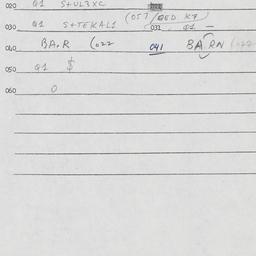 020 Q1 S+UL3XC
030 Q1 S+TEKAL1 (057/GED K7) 031 Q1 —
040 BA.R (022 041 BARN (022
050 Q1 $
060 0